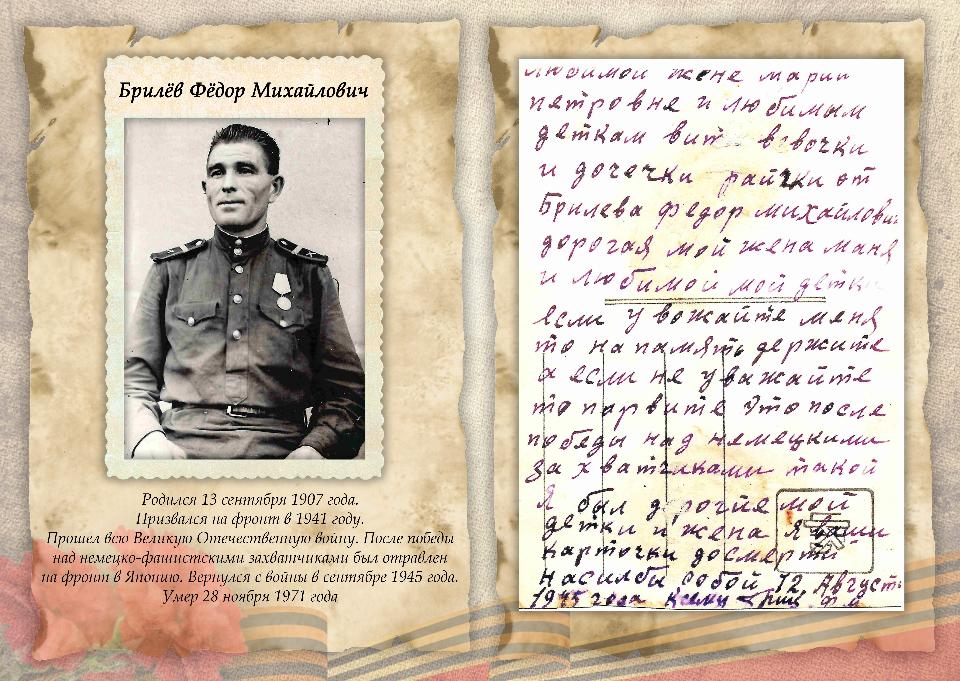 Брилёв Фёдор Михайлович
Родился 13 сентября 1907 года.
Призвался на фронт в 1941 году.
Прошел всю Великую Отечественную войну. После победы
над немецко-фашистскими захватчиками был отравлен
на фронт в Японию. Вернулся с войны в сентябре 1945 года.
Умер 28 ноября 1971 года
любимой жене марии
петровне и любимым
деткам
и дочечки райчки от
Брилева федор михайлович
дорогая мой жена маня
и любимой мой детки
если увожайте меня
то на память держите
а если не уважайте
то порвите Это после
победы над немецкими
захватчиками такой
Я был дорогие мой
детки и жена я вами
карточки досмерти
собой 12 Август
1945 года